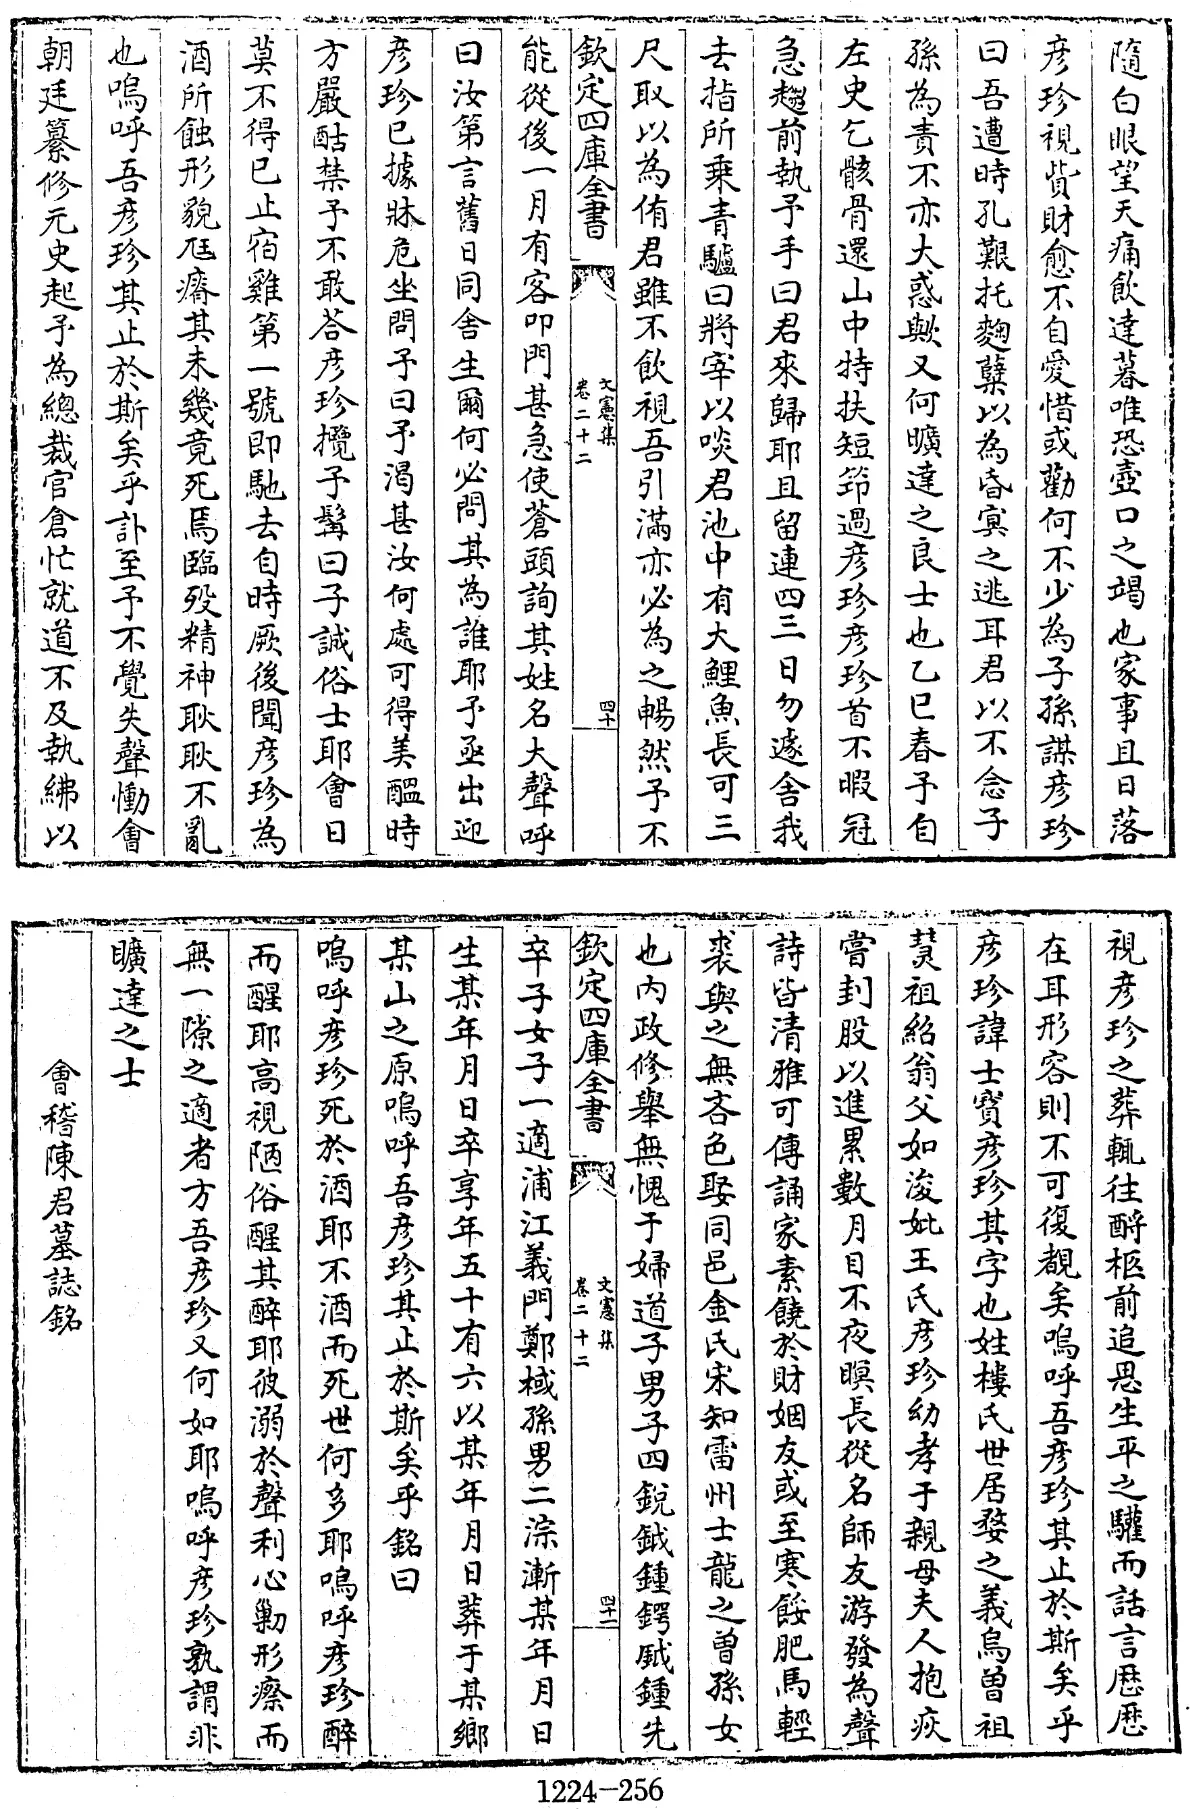 隨白眼望天痛飲達暮唯恐壺口之竭也家事且日落
彦珍視貲財愈不自愛惜或勸何不少為子孫謀彦珍
曰吾遭時孔艱托麴糵以為昏冥之逃耳君以不念子
孫為責不亦大惑歟又何曠達之良士也乙巳春予自
左史乞骸骨還山中特扶短筇過彦珍彦珍首不暇冠
急趨前執予手曰君來歸耶且留連四三日勿遽舍我
去指所乗青驢曰將宰以啖君池中有大鯉魚長可三
尺取以為侑君雖不飲視吾引滿亦必為之暢然予不
欽定四庫全書
文憲集
卷二十二
四十
能從後一月有客叩門甚急使蒼頭詢其姓名大聲呼
曰汝第言舊日同舍生爾何必問其為誰耶予亟出迎
彦珍已據牀危坐問予曰予渴甚汝何處可得美醞時
方嚴酤禁予不敢荅彦珍攬予髯曰子誠俗士耶會日
莫不得已止宿雞第一號即馳去自時厥後聞彦珍為
酒所蝕形貌尫瘠其未幾竟死焉臨殁精神耿耿不亂
也嗚呼吾彦珍其止於斯矣乎訃至予不覺失聲慟會
朝廷纂修元史起予為總裁官倉忙就道不及執紼以
視彦珍之葬輒往酹柩前追思生平之驩而話言歴歴
在耳形容則不可復覩矣嗚呼吾彦珍其止於斯矣乎
彦珍諱士寳彦珍其字也姓樓氏世居婺之義烏曽祖
贇祖紹翁父如浚妣王氏彦珍幼孝于親母夫人抱疾
嘗刲股以進累數月目不夜瞑長從名師友游發為聲
詩皆清雅可傳誦家素饒於財姻友或至寒餒肥馬輕
裘與之無吝色娶同邑金氏宋知雷州士龍之曽孫女
也内政修舉無愧于婦道子男子四銳鉞鍾鍔鉞鍾先
欽定四庫全書
文憲集
卷二十二
四十一
卒子女子一適浦江義門鄭棫孫男二淙漸某年月日
生某年月日卒享年五十有六以某年月日葬于某鄉
某山之原嗚呼吾彦珍其止於斯矣乎銘曰
嗚呼彦珍死於酒耶不酒而死世何多耶嗚呼彦珍醉
而醒耶高視陋俗醒其醉耶彼溺於聲利心勦形瘵而
無一隙之適者方吾彦珍又何如耶嗚呼彦珍孰謂非
曠達之士
會稽陳君墓誌銘
1224-256